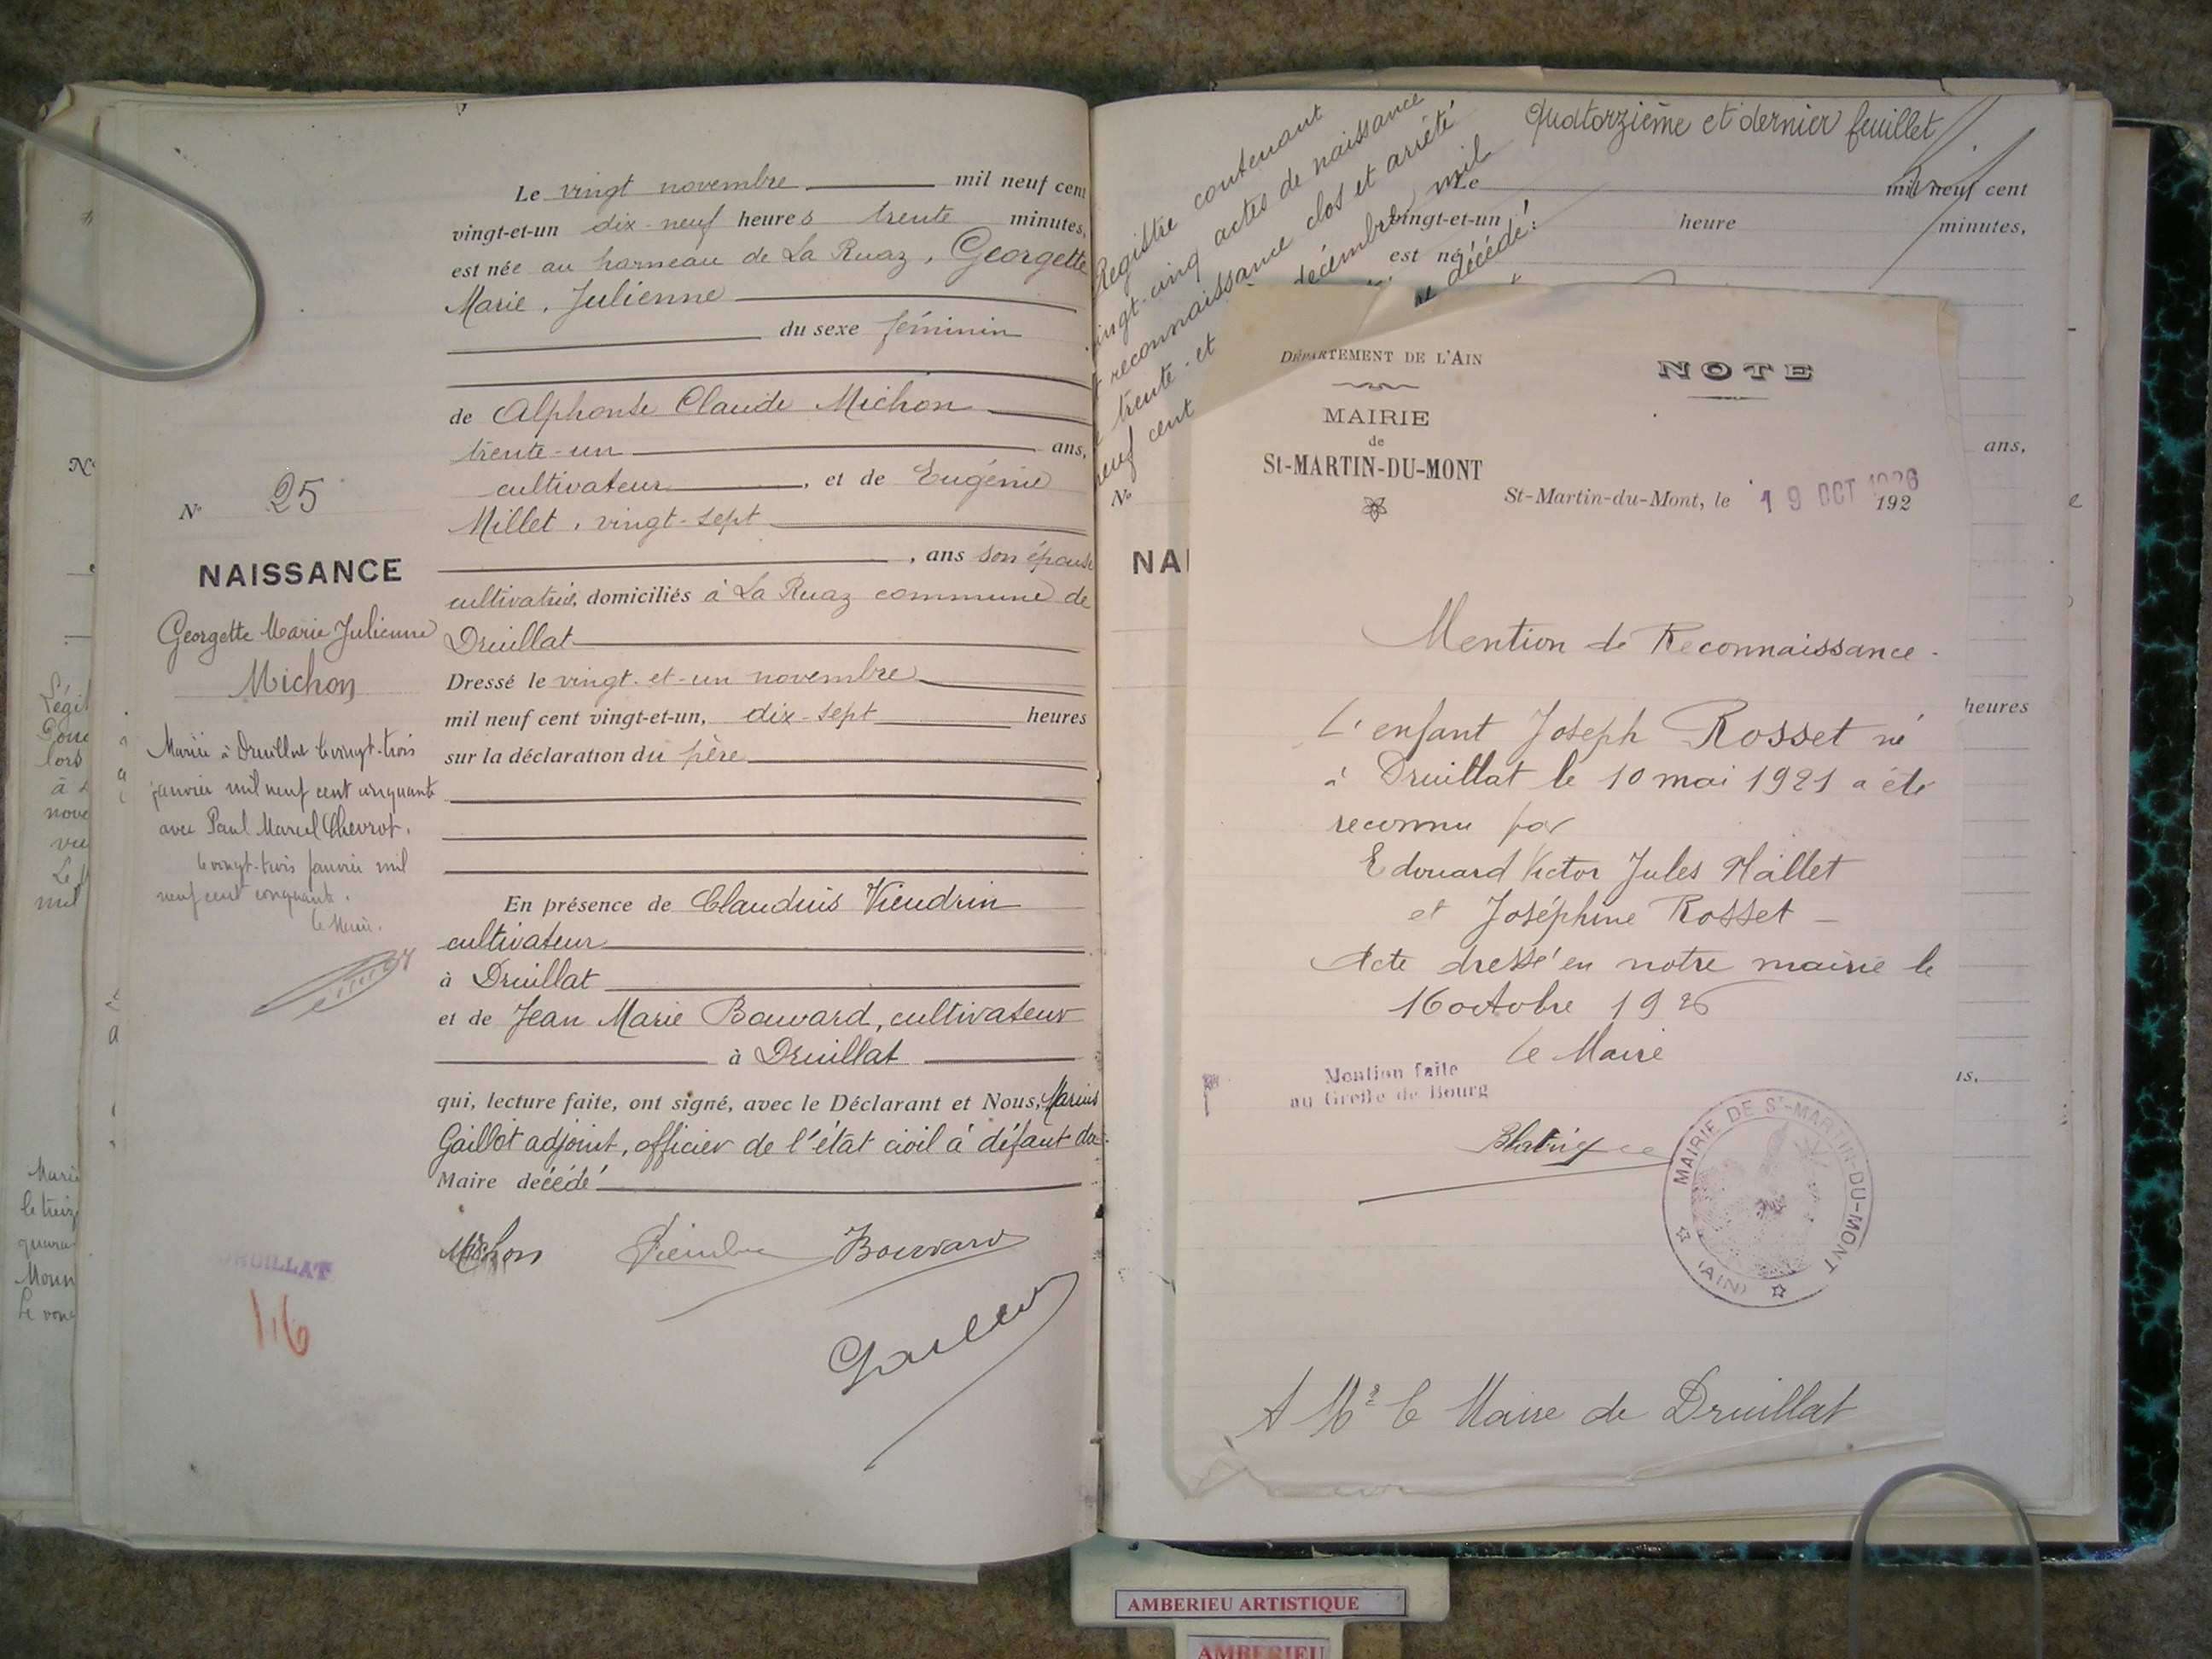 Le vingt novembre mil neuf cent
vingt-et-un dix-neuf heures trente minutes,
est née au hameau de La Ruaz, Georgette
Marie, Julienne
du sexe féminin
de Alphonse Claude Michon
trente-un ans,
cultivateur, et de Eugénie
Millet, vingt-sept
, ans son épouse
cultivatrice, domiciliés à La Ruaz commune de
Druillat
Dressé le vingt-et-un novembre
mil neuf cent vingt-et-un, dix-sept heures
sur la déclaration du père
En présence de Claudius Vieudrin
cultivateur
à Druillat
et de Jean Marie Bouvard, cultivateur
à Druillat
qui, lecture faite, ont signé, avec le Déclarant et Nous, Marius
Gaillot adjoint, officier de l'état civil à défaut du
Maire décédé
Michon Bouvard
N° 25
NAISSANCE
Georgette Marie Julienne
Michon
Mariée à Druillat le vingt-trois
janvier mil neuf cent cinquante
avec Paul Marcel Chevrot.
le vingt-trois janvier mil
neuf cent cinquante.
le Maire.
DRUILLAT
116
Registre contenant
vingt-cinq actes de naissance
reconnaissance clos et arrêté
trente-et décembre mil
neuf cent
décédé:
Quatorzième et dernier feuillet
Le mil neuf cent
vingt-et-un heure minutes,
est né
ans,
heures
N°
NAI
DÉPARTEMENT DE L'AIN
MAIRIE
de
St-MARTIN-DU-MONT
NOTE
St-Martin-du-Mont, le 19 OCT 1926 192
Mention de Reconnaissance.
L'enfant Joseph Rosset né
à Druillat le 10 mai 1921 a été
reconnu par
Edouard Victor Jules Hallet
et Joséphine Rosset
Acte dressé en notre mairie le
16 octobre 1926
le Maire
Mention faite
au Greffe de Bourg
MAIRIE DE St-MARTIN-DU-MONT
(AIN)
A Mr le Maire de Druillat
AMBERIEU ARTISTIQUE
AMBERIEU